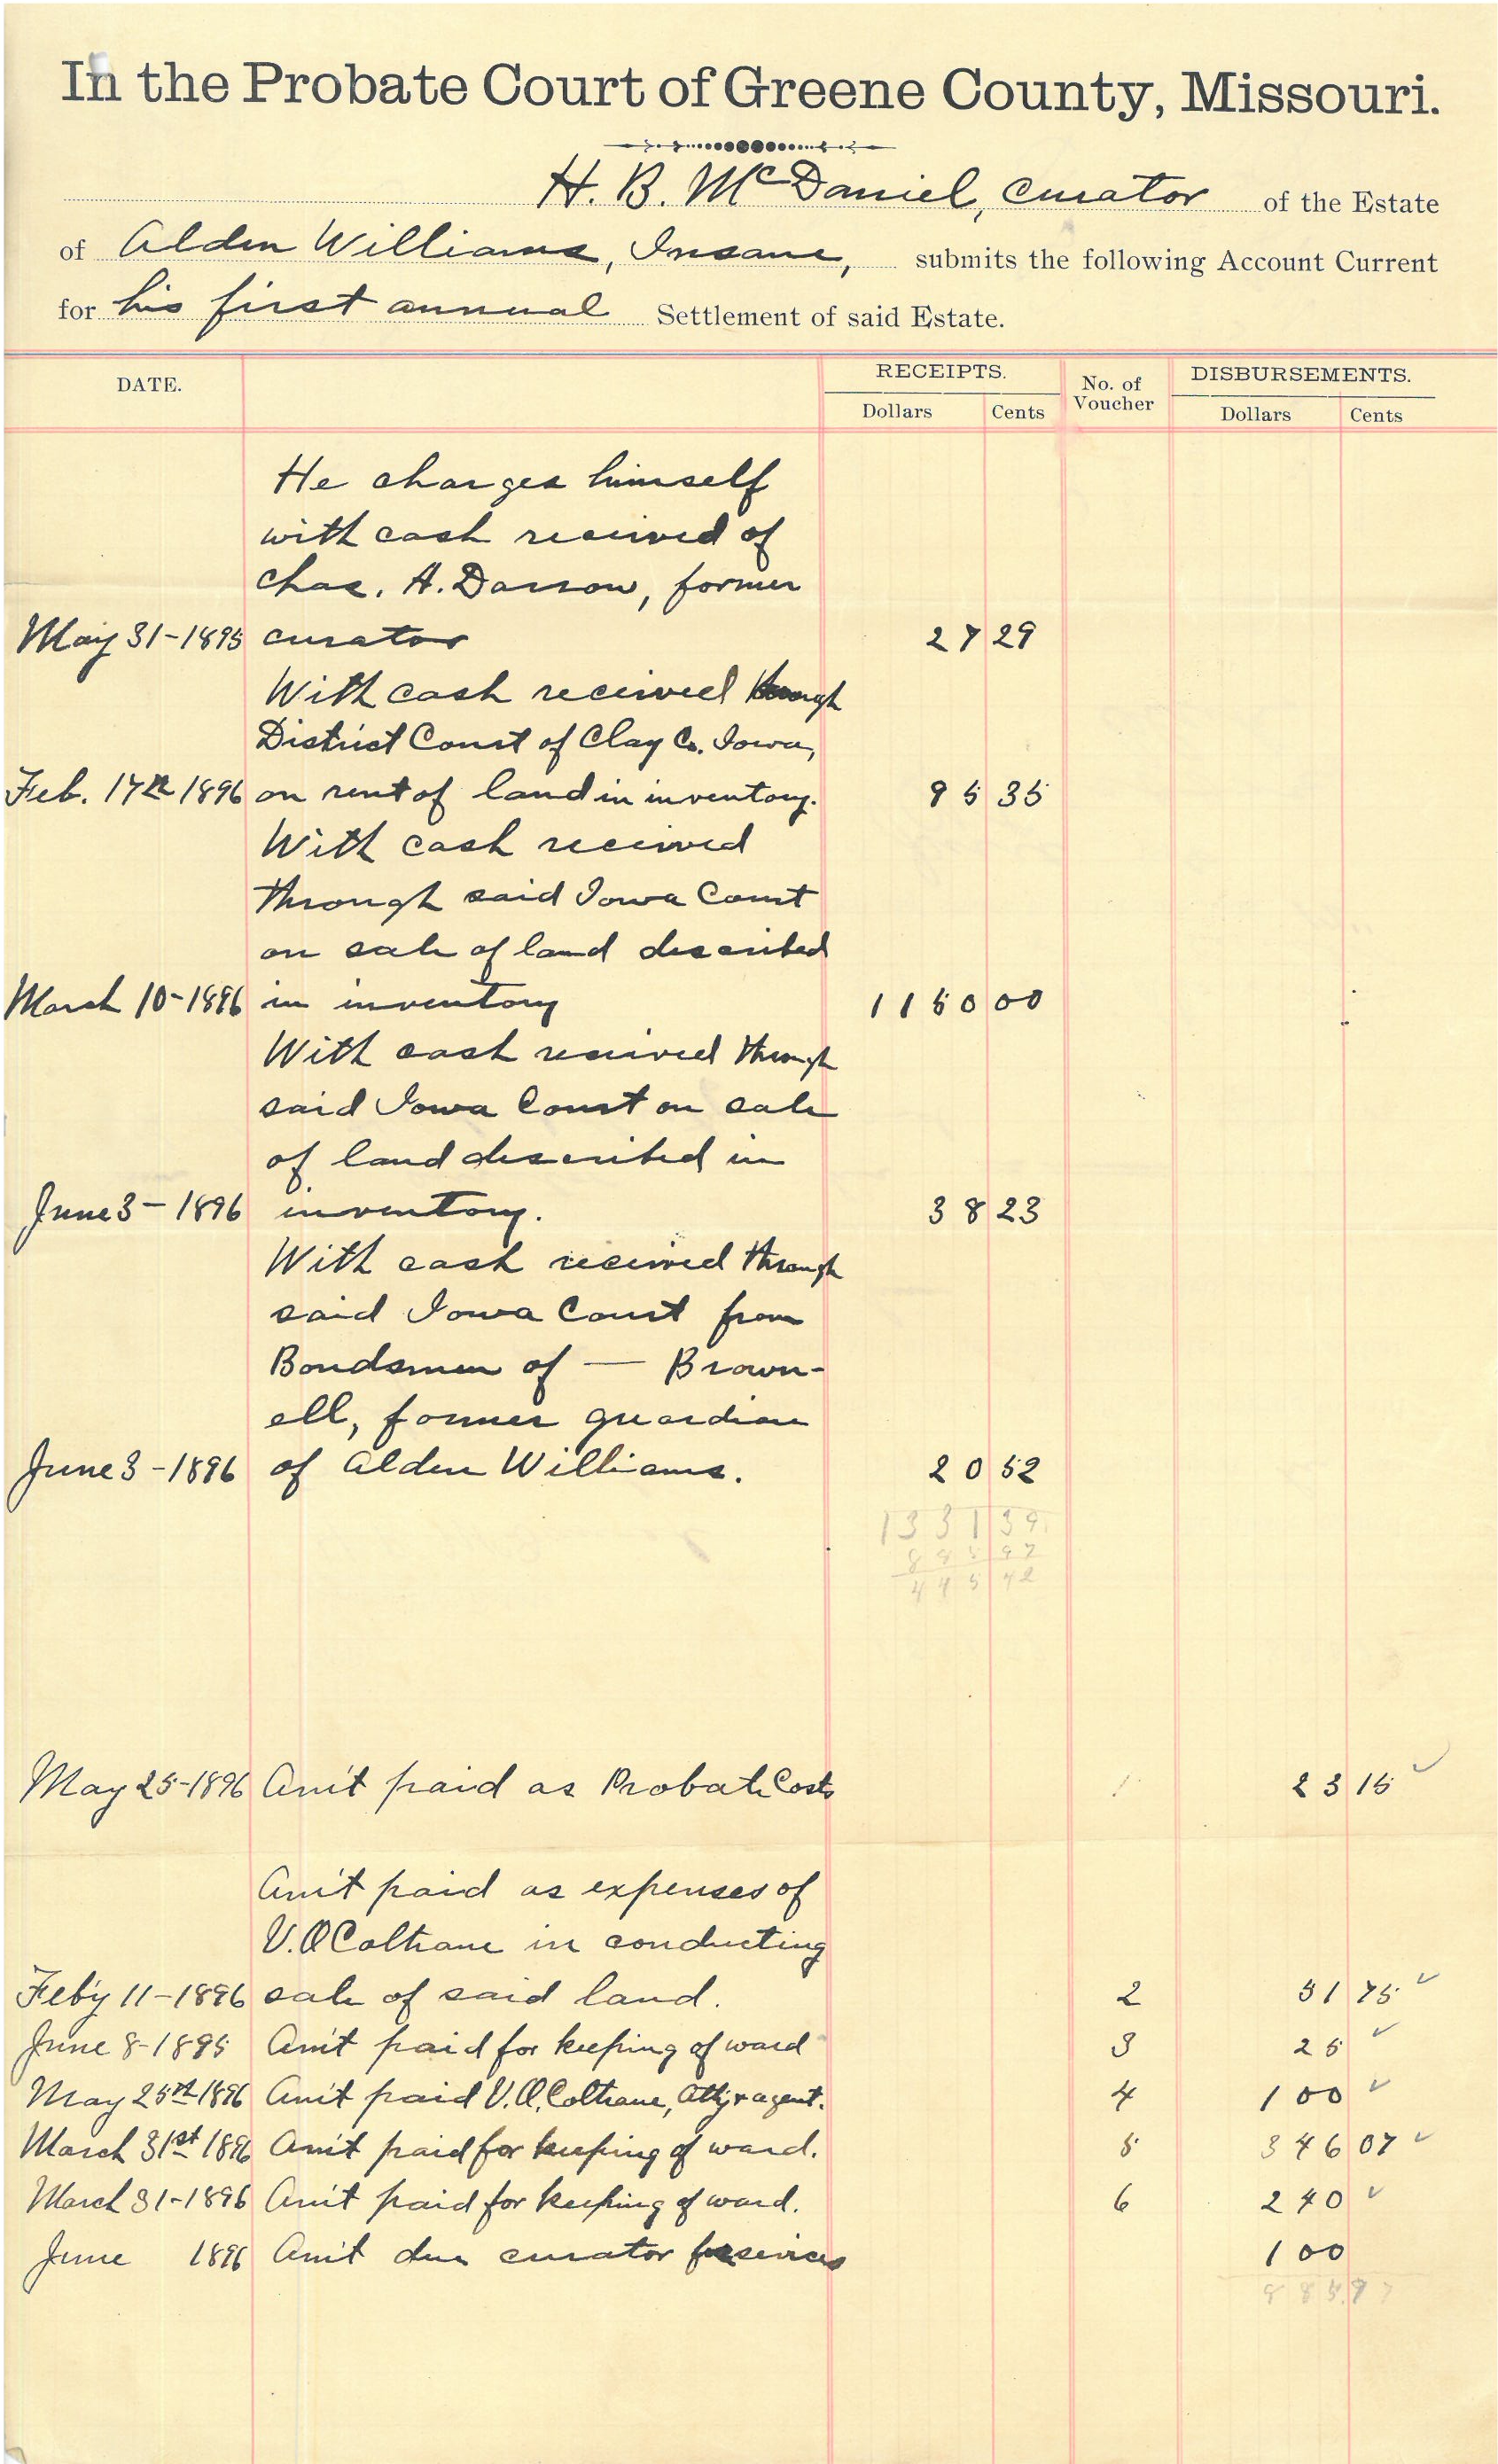 In the Probate Court of Greene County, Missouri.
H. B. McDaniel, Curator of the Estate
of Alden Williams, Insane, submits the following Account Current
for his first annual Settlement of said Estate.
DATE. RECEIPTS. No. of Voucher DISBURSEMENTS.
Dollars Cents Dollars Cents
He charges himself
with cash received of
Chas. A. Darrow, former
May 31-1895 curator 27 29
With cash received through
District Court of Clay Co. Iowa,
Feb. 17th 1896 on rent of land in inventory. 95 35
With cash received
through said Iowa Court
on sale of land described
March 10-1896 in inventory 1150 00
With cash received through
said Iowa Court on sale
of land described in
June 3-1896 inventory. 38 23
With cash received through
said Iowa Court from
Bondsmen of — Brown-
ell, former guardian
June 3-1896 of Alden Williams. 20 52
1331 39
885 97
445 42
May 25-1896 Am't paid as Probate Costs 1 23 15 ✓
Am't paid as expenses of
V.O. Coltrane in conducting
Feb'y 11-1896 sale of said land. 2 51 75 ✓
June 8-1895 Am't paid for keeping of ward 3 25 ✓
May 25th 1896 Am't paid V.O. Coltrane, Att'y & agent. 4 100 ✓
March 31st 1896 Am't paid for keeping of ward. 5 346 07 ✓
March 31-1896 Am't paid for keeping of ward. 6 240 ✓
June 1896 Am't due curator for services 100
885.97